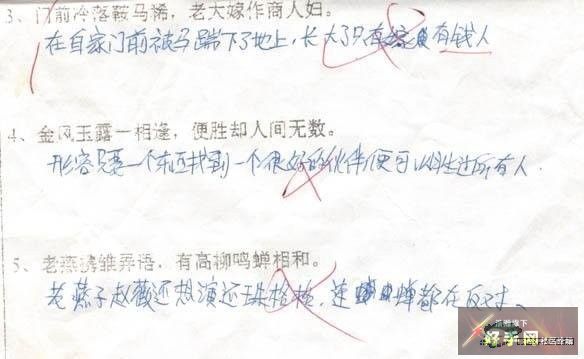 3、门前冷落鞍马稀，老大嫁作商人妇。
在自家门前被马踹下了地上，长大了只有 有钱人
4、金风玉露一相逢，便胜却人间无数。
形容只要一个东西找到一个很好的伙伴便可以胜过所有人.
5、老燕携雏弄语，有高柳鸣蝉相和。
老燕子赵薇还想演还珠格格，连 蝉都在反对。
好手网